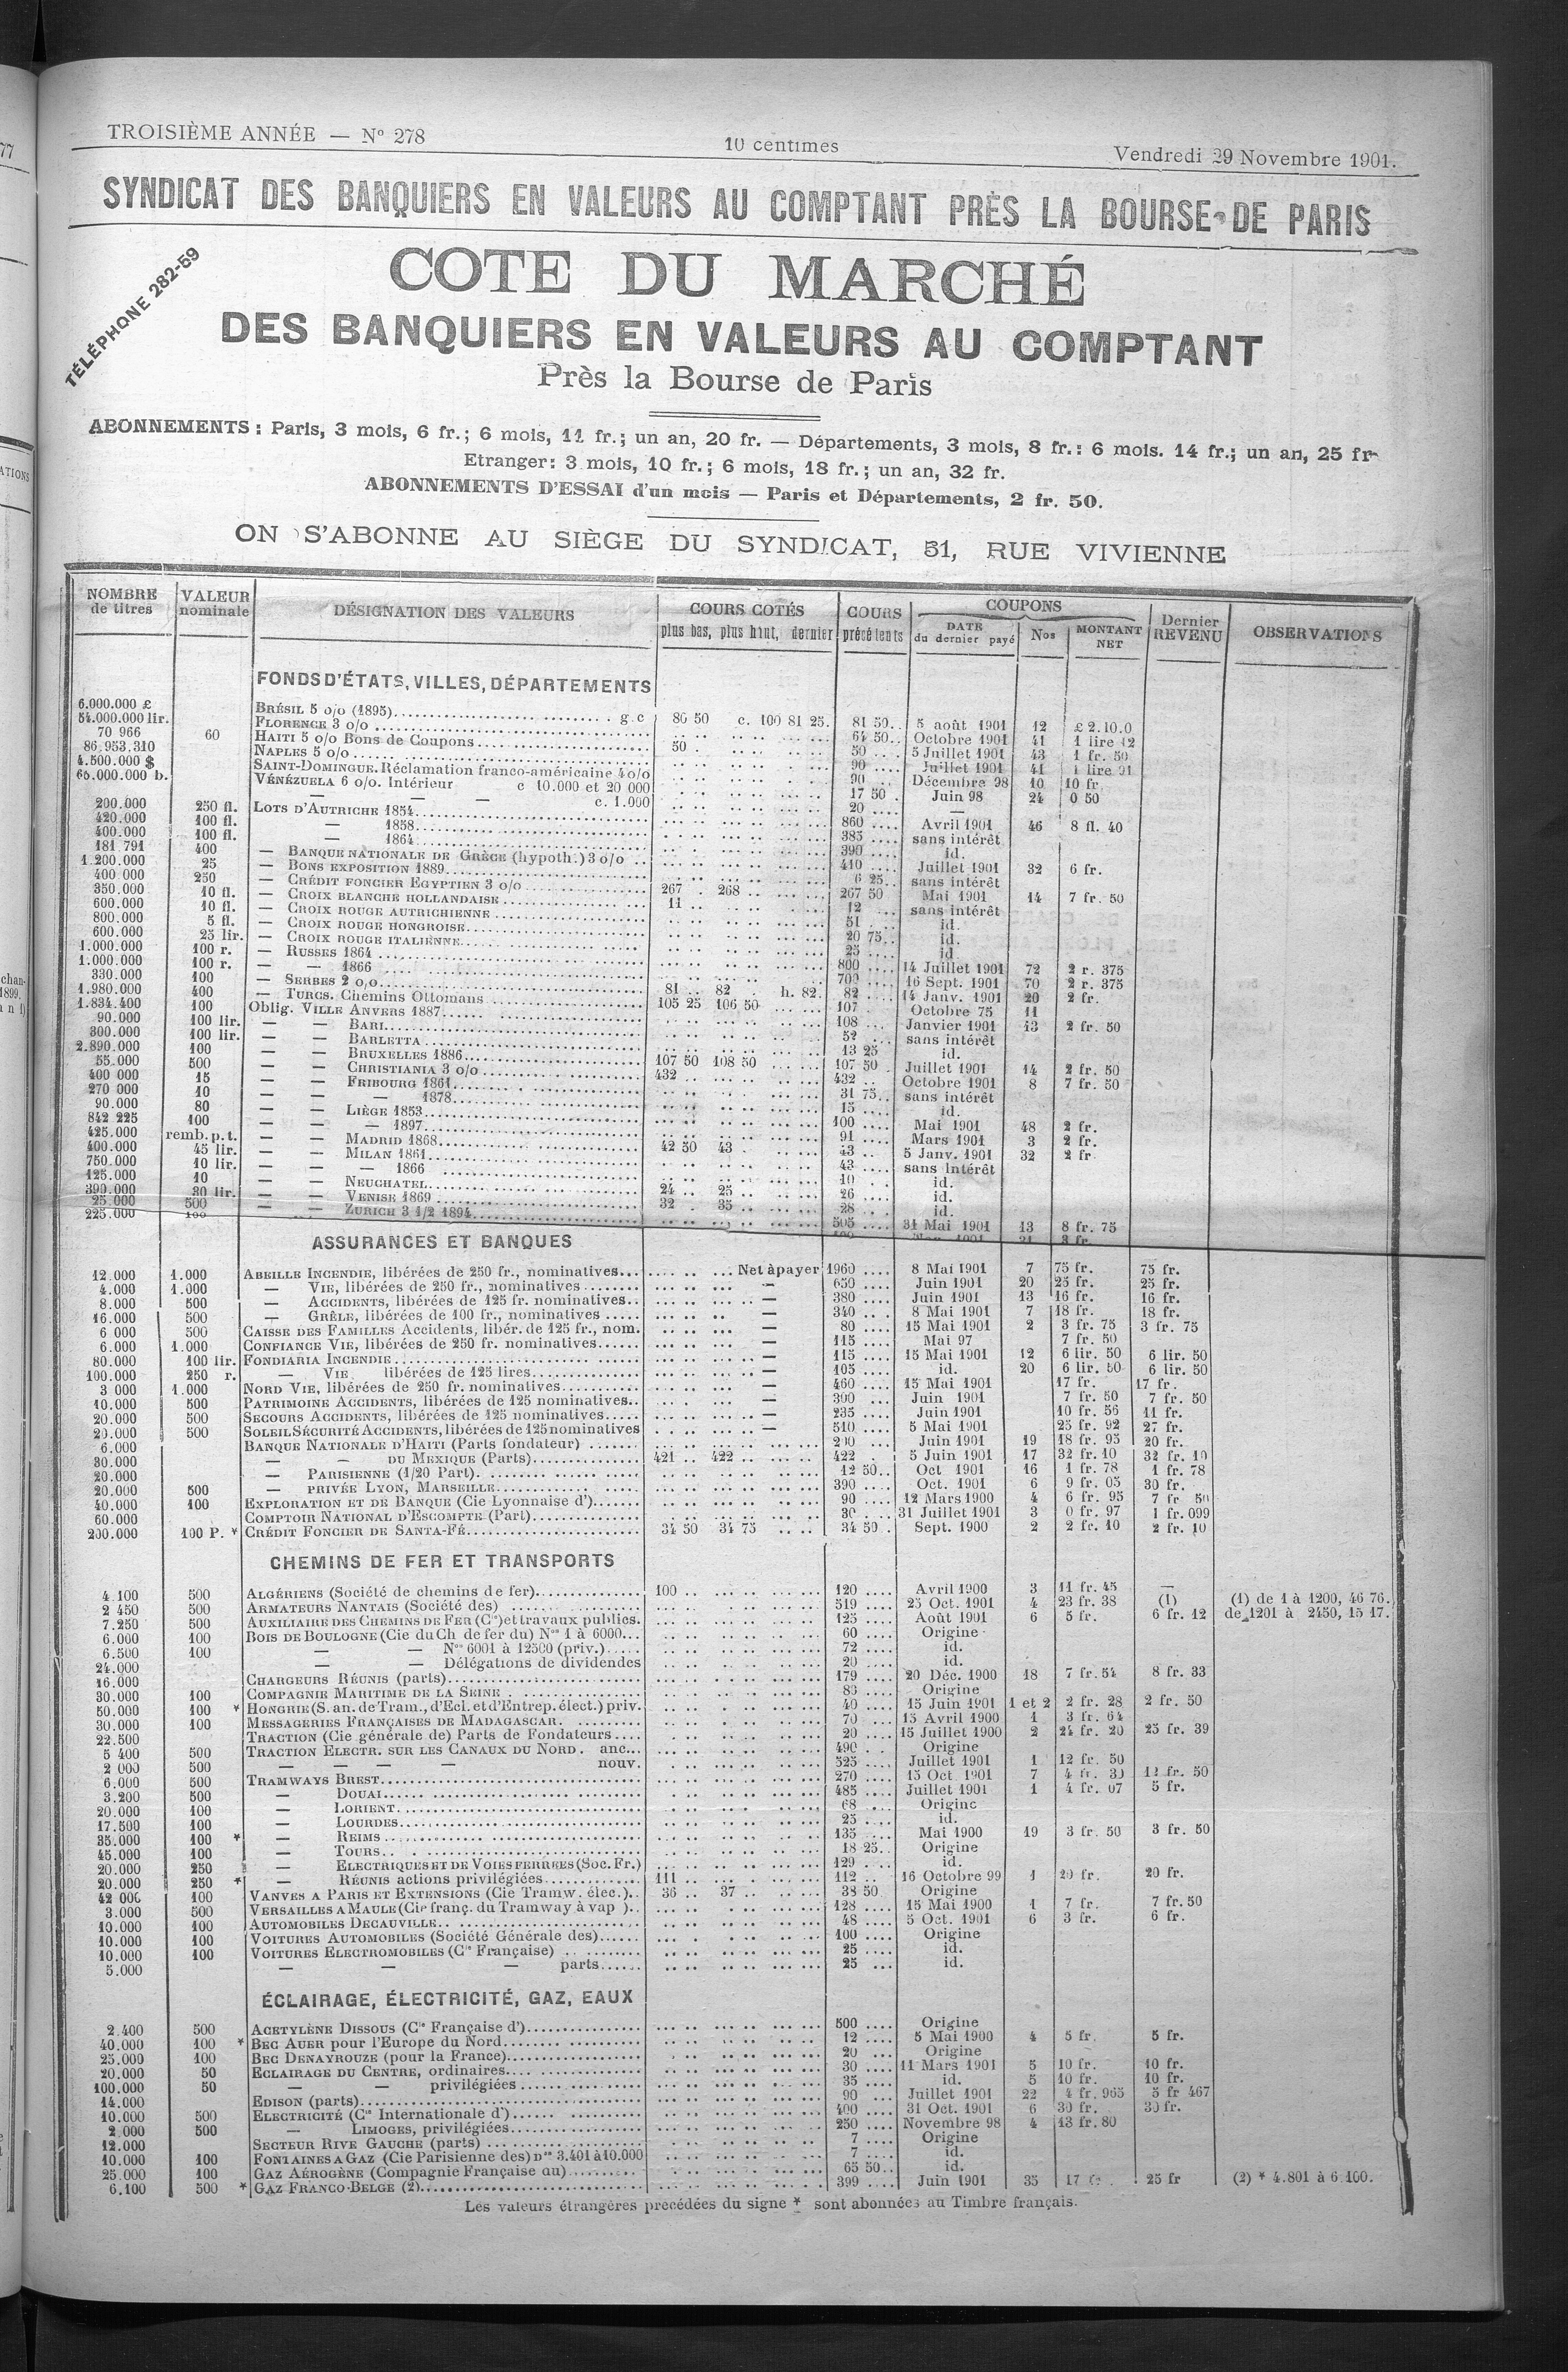 TROISIÈME ANNÉE — N° 278 10 centimes Vendredi 29 Novembre 1901.
SYNDICAT DES BANQUIERS EN VALEURS AU COMPTANT PRÈS LA BOURSE DE PARIS
TÉLÉPHONE 282-59
COTE DU MARCHÉ
DES BANQUIERS EN VALEURS AU COMPTANT
Près la Bourse de Paris
ABONNEMENTS : Paris, 3 mois, 6 fr.; 6 mois, 11 fr.; un an, 20 fr. — Départements, 3 mois, 8 fr.: 6 mois. 14 fr.; un an, 25 fr
Etranger: 3 mois, 10 fr.; 6 mois, 18 fr.; un an, 32 fr.
ABONNEMENTS D'ESSAI d'un mois — Paris et Départements, 2 fr. 50.
ON S'ABONNE AU SIÈGE DU SYNDICAT, 31, RUE VIVIENNE
NOMBRE de titres VALEUR nominale DÉSIGNATION DES VALEURS COURS COTÉS plus bas, plus haut, dernier COURS précédents COUPONS DATE du dernier payé Nos MONTANT NET Dernier REVENU OBSERVATIONS
FONDS D'ÉTATS, VILLES, DÉPARTEMENTS
6.000.000 £ BRÉSIL 5 o/o (1895) g.c 80 50 c. 100 81 25. 81 50 5 août 1901 12 £ 2.10.0
54.000.000 lir. FLORENCE 3 o/o 64 50 Octobre 1901 41 1 lire 12
70 966 60 HAITI 5 o/o Bons de Coupons 50 50 5 Juillet 1901 43 1 fr. 50
86.953.310 NAPLES 5 o/o 90 Juillet 1901 41 1 lire 91
4.500.000 $ SAINT-DOMINGUE. Réclamation franco-américaine 4 o/o 90 Décembre 98 10 10 fr.
65.000.000 b. VÉNÉZUELA 6 o/o. Intérieur c 10.000 et 20 000 17 50 Juin 98 24 0 50
— — — c. 1.000 20 —
200.000 250 fl. LOTS D'AUTRICHE 1854 860 Avril 1901 46 8 fl. 40
420.000 100 fl. — 1858 385 sans intérêt
400.000 100 fl. — 1864 390 id.
181 791 400 — BANQUE NATIONALE DE GRÈCE (hypoth.) 3 o/o 410 Juillet 1901 32 6 fr.
1.200.000 25 — BONS EXPOSITION 1889 6 25 sans intérêt
400 000 250 — CRÉDIT FONCIER EGYPTIEN 3 o/o 267 268 267 50 Mai 1901 14 7 fr. 50
350.000 10 fl. — CROIX BLANCHE HOLLANDAISE 11 12 sans intérêt
600.000 10 fl. — CROIX ROUGE AUTRICHIENNE 51 id.
800.000 5 fl. — CROIX ROUGE HONGROISE 20 75 id.
600.000 25 lir. — CROIX ROUGE ITALIENNE 25 id
1.000.000 100 r. — RUSSES 1864 800 14 Juillet 1901 72 2 r. 375
1.000.000 100 r. — — 1866 700 16 Sept. 1901 70 2 r. 375
330.000 100 — SERBES 2 o/o 81 82 h. 82. 82 14 Janv. 1901 20 2 fr.
1.980.000 400 — TURCS. Chemins Ottomans 105 25 106 50 107 Octobre 75 11
1.834.400 100 Oblig. VILLE ANVERS 1887 108 Janvier 1901 13 2 fr. 50
90.000 100 lir. — — BARI 52 sans intérêt
300.000 100 lir. — — BARLETTA 13 25 id.
2.890.000 100 — — BRUXELLES 1886 107 50 108 50 107 50 Juillet 1901 14 2 fr. 50
55.000 500 — — CHRISTIANIA 3 o/o 432 432 Octobre 1901 8 7 fr. 50
400 000 15 — — FRIBOURG 1861 31 75 sans intérêt
270 000 10 — — — 1878 15 id.
90.000 80 — — LIÈGE 1853 100 Mai 1901 48 2 fr.
842 225 100 — — — 1897 91 Mars 1901 3 2 fr.
425.000 remb. p. t. — — MADRID 1868 42 50 43 43 5 Janv. 1901 32 2 fr.
400.000 45 lir. — — MILAN 1861 43 sans intérêt
750.000 10 lir. — — — 1866 10 id.
125.000 10 — — NEUCHATEL 24 25 26 id.
399.000 30 lir. — — VENISE 1869 32 35 28 id.
25.000 500 — — ZURICH 3 1/2 1894 505 31 Mai 1901 13 8 fr. 75
225.000 100
ASSURANCES ET BANQUES
12.000 1.000 ABEILLE INCENDIE, libérées de 250 fr., nominatives Net à payer 1960 8 Mai 1901 7 75 fr. 75 fr.
4.000 1.000 — VIE, libérées de 250 fr., nominatives — 650 Juin 1901 20 25 fr. 25 fr.
8.000 500 — ACCIDENTS, libérées de 125 fr. nominatives — 380 Juin 1901 13 16 fr. 16 fr.
16.000 500 — GRÊLE, libérées de 100 fr., nominatives — 340 8 Mai 1901 7 18 fr. 18 fr.
6 000 500 CAISSE DES FAMILLES Accidents, libér. de 125 fr., nom. — 80 15 Mai 1901 2 3 fr. 75 3 fr. 75
6.000 1.000 CONFIANCE VIE, libérées de 250 fr. nominatives — 115 Mai 97 7 fr. 50
80.000 100 lir. FONDIARIA INCENDIE — 115 15 Mai 1901 12 6 lir. 50 6 lir. 50
100.000 250 r. — VIE libérées de 125 lires — 105 id. 20 6 lir. 50 6 lir. 50
3 000 1.000 NORD VIE, libérées de 250 fr. nominatives — 460 15 Mai 1901 17 fr. 17 fr.
10.000 500 PATRIMOINE ACCIDENTS, libérées de 125 nominatives — 300 Juin 1901 7 fr. 50 7 fr. 50
20.000 500 SECOURS ACCIDENTS, libérées de 125 nominatives — 235 Juin 1901 10 fr. 56 11 fr.
20.000 500 SOLEIL SÉCURITÉ ACCIDENTS, libérées de 125 nominatives — 510 5 Mai 1901 25 fr. 92 27 fr.
6.000 BANQUE NATIONALE D'HAITI (Parts fondateur) 200 Juin 1901 19 18 fr. 95 20 fr.
30.000 — — DU MEXIQUE (Parts) 421 422 422 5 Juin 1901 17 32 fr. 10 32 fr. 10
20.000 — PARISIENNE (1/20 Part) 12 50 Oct 1901 16 1 fr. 78 1 fr. 78
20.000 500 — PRIVÉE LYON, MARSEILLE 390 Oct. 1901 6 9 fr. 05 30 fr.
40.000 100 EXPLORATION ET DE BANQUE (Cie Lyonnaise d') 90 12 Mars 1900 4 6 fr. 95 7 fr 50
60.000 COMPTOIR NATIONAL D'ESCOMPTE (Part) 30 31 Juillet 1901 3 0 fr. 97 1 fr. 099
200.000 100 P. * CRÉDIT FONCIER DE SANTA-FÉ 34 50 34 75 34 50 Sept. 1900 2 2 fr. 10 2 fr. 10
CHEMINS DE FER ET TRANSPORTS
4.100 500 ALGÉRIENS (Société de chemins de fer) 100 120 Avril 1900 3 11 fr. 45 —
2 450 500 ARMATEURS NANTAIS (Société des) 519 25 Oct. 1901 4 23 fr. 38 (1) (1) de 1 à 1200, 46 76.
7.250 500 AUXILIAIRE DES CHEMINS DE FER (Cie) et travaux publics. 125 Août 1901 6 5 fr. 6 fr. 12 de 1201 à 2450, 15 17.
6.000 100 BOIS DE BOULOGNE (Cie du Ch de fer du) Nos 1 à 6000 60 Origine
6.500 100 — — Nos 6001 à 12500 (priv.) 72 id.
24.000 — — Délégations de dividendes 20 id.
16.000 CHARGEURS RÉUNIS (parts) 179 20 Déc. 1900 18 7 fr. 54 8 fr. 33
30.000 100 COMPAGNIE MARITIME DE LA SEINE 85 Origine
50.000 100 * HONGRIE (S. an. de Tram., d'Ecl. et d'Entrep. élect.) priv. 40 15 Juin 1901 1 et 2 2 fr. 28 2 fr. 50
30.000 100 MESSAGERIES FRANÇAISES DE MADAGASCAR. 70 15 Avril 1900 1 3 fr. 64
22.500 TRACTION (Cie générale de) Parts de Fondateurs 20 15 Juillet 1900 2 24 fr. 20 25 fr. 39
5 400 500 TRACTION ELECTR. SUR LES CANAUX DU NORD. anc. 490 Origine
2 000 500 — — — — nouv. 525 Juillet 1901 1 12 fr. 50
6.000 500 TRAMWAYS BREST 270 15 Oct 1901 7 4 fr. 30 12 fr. 50
3.200 500 — DOUAI 485 Juillet 1901 1 4 fr. 07 5 fr.
20.000 100 — LORIENT 68 Origine
17.500 100 — LOURDES 25 id.
35.000 100 * — REIMS 135 Mai 1900 19 3 fr. 50 3 fr. 50
45.000 100 — TOURS 18 25 Origine
20.000 250 — ELECTRIQUES ET DE VOIES FERRÉES (Soc. Fr.) 129 id.
20.000 250 * — RÉUNIS actions privilégiées 111 112 16 Octobre 99 1 20 fr. 20 fr.
42 000 100 VANVES A PARIS ET EXTENSIONS (Cie Tramw. élec.) 36 37 38 50 Origine
3.000 500 VERSAILLES A MAULE (Cie franç. du Tramway à vap ) 128 15 Mai 1900 1 7 fr. 7 fr. 50
10.000 100 AUTOMOBILES DECAUVILLE 48 5 Oct. 1901 6 3 fr. 6 fr.
10.000 100 VOITURES AUTOMOBILES (Société Générale des) 100 Origine
10.000 100 VOITURES ELECTROMOBILES (Cie Française) 25 id.
5.000 — — — parts 25 id.
ÉCLAIRAGE, ÉLECTRICITÉ, GAZ, EAUX
2.400 500 ACETYLÈNE DISSOUS (Cie Française d') 500 Origine
40.000 100 * BEC AUER pour l'Europe du Nord 12 5 Mai 1900 4 5 fr. 5 fr.
25.000 100 BEC DENAYROUZE (pour la France) 20 Origine
20.000 50 ECLAIRAGE DU CENTRE, ordinaires 30 11 Mars 1901 5 10 fr. 10 fr.
100.000 50 — — privilégiées 35 id. 5 10 fr. 10 fr.
14.000 EDISON (parts) 90 Juillet 1901 22 4 fr. 965 5 fr 467
10.000 500 ELECTRICITÉ (Cie Internationale d') 400 31 Oct. 1901 6 30 fr. 30 fr.
2.000 500 — LIMOGES, privilégiées 250 Novembre 98 4 13 fr. 80
12.000 SECTEUR RIVE GAUCHE (parts) 7 Origine
10.000 100 FONTAINES A GAZ (Cie Parisienne des) Nos 3.401 à 10.000 7 id.
25.000 100 GAZ AÉROGÈNE (Compagnie Française du) 65 50 id.
6.100 500 * GAZ FRANCO-BELGE (2) 399 Juin 1901 35 17 fr 25 fr (2) * 4.801 à 6 100.
Les valeurs étrangères précédées du signe * sont abonnées au Timbre français.